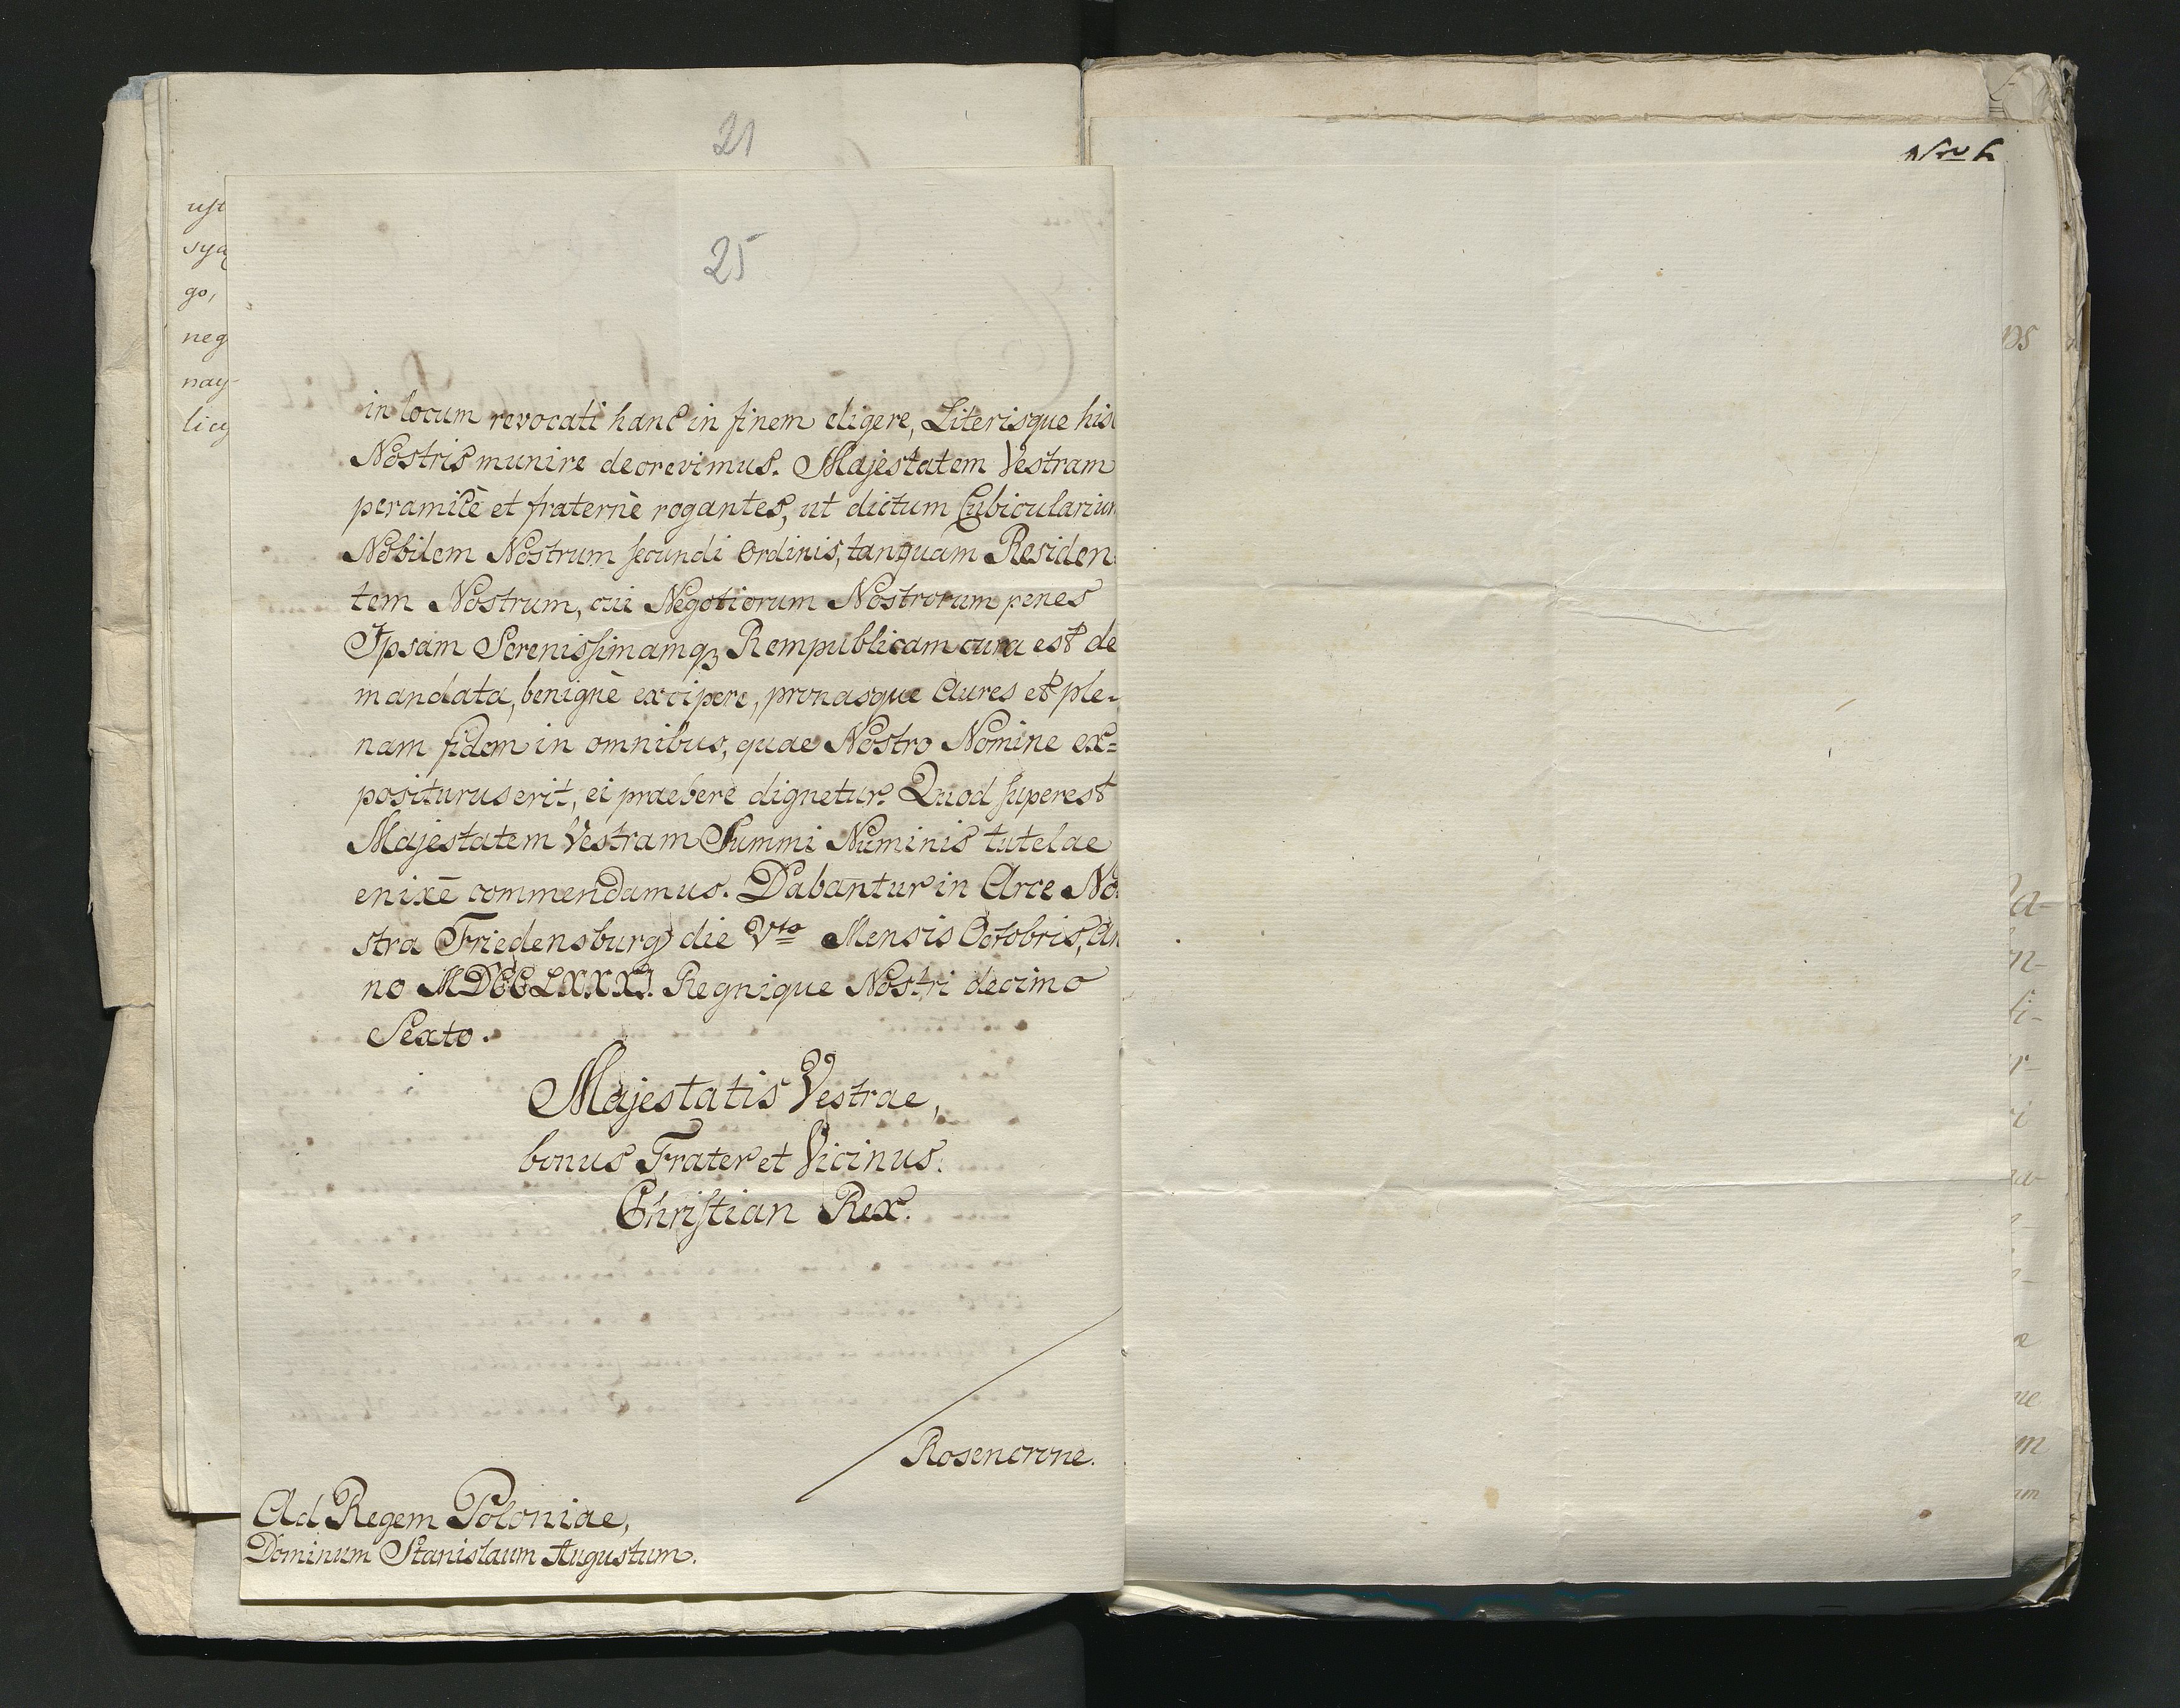 21
25
in locum revocati hanc in finem eligere, Literisque his
Nostris munire decrevimus. Majestatem Vestram
peramicè et fraternè rogantes, ut dictum Cubicularium
Nobilem Nostrum secundi Ordinis, tanquam Residen
tem Nostrum, cui Negotiorum Nostrorum penes
Ipsam Serenissimamqꝫ Rempublicam cura est de
mandata, benignè excipere, pronasque Aures et ple-
nam fidem in omnibus, quae Nostro Nomine ex=
positurus erit, ei praebere dignetur. Quod superest
Majestatem Vestram Summi Numinis tutelae
enixè commendamus. Dabantur in Arce No
stra Friedensburg die Vto Mensis Octobris, An
no MDCCLXXXI. Regnique Nostri decimo
Sexto.
Majestatis Vestrae,
bonus Frater et Vicinus.
Christian Rex.
Rosencrone.
Ad Regem Poloniae,
Dominum Stanislaum Augustum.
ust
sya
go,
neg
nay-
licy